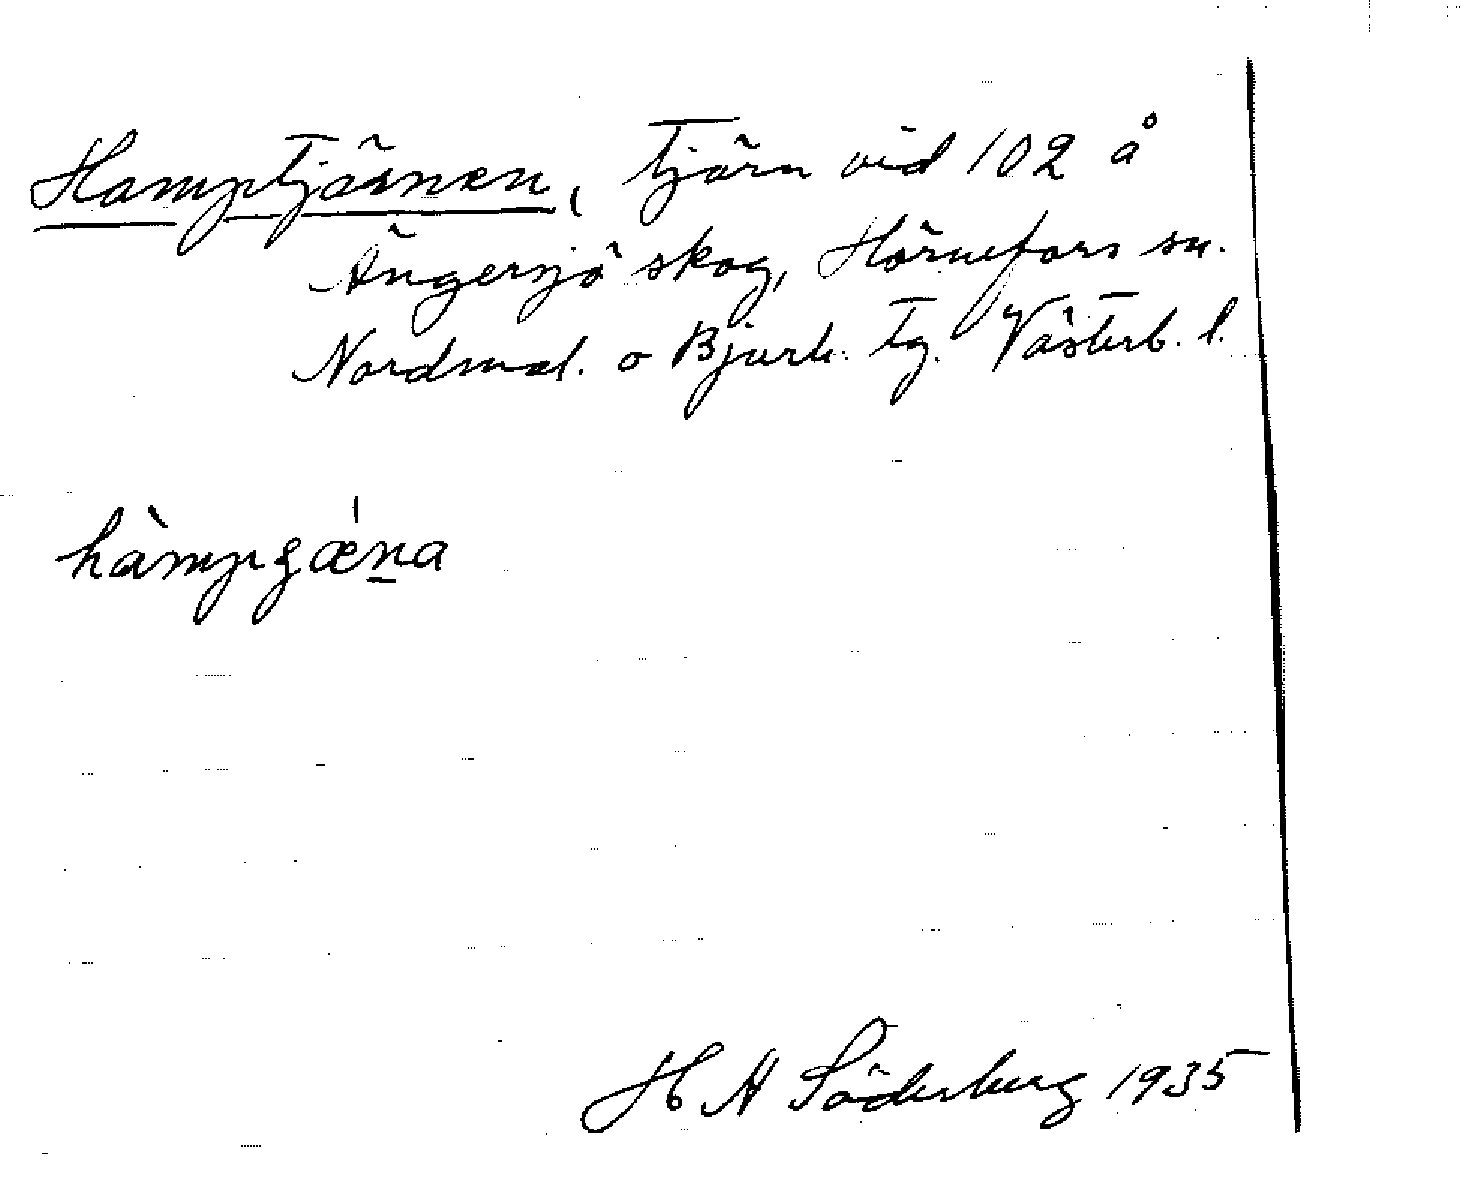 Hamptjärnen, tjärn vid 102 å
Ängersjö skog, Hörnefors sn.
Nordmal. o Bjurh. tg. Västerb. l.
hàmpgǽn̲a
H A Söderberg 1935